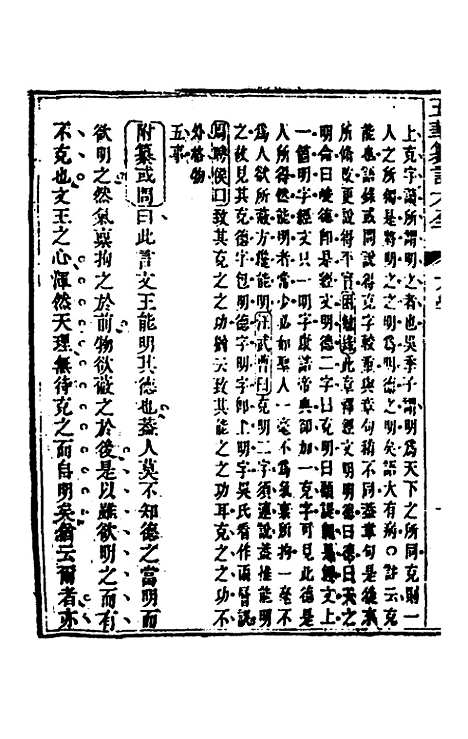 上克字謂所謂明之者也吳季子謂明爲天下之所同克則一
人之所獨是將明之之明爲明德之明矣語大有病〇註云克
能也語錄或問說得克字較重與章句稍不同蓋章句是後來
所修改更說得平實
此章釋經文明明德曰德曰天之
明命曰峻德即是經文明德二字曰克明曰顧諟即是經文上
一个明字經文只一明字典謨諸帝典卻加一克字可見此德是
人所得然能明者常少必如聖人一毫不爲氣稟所拘一毫不
爲人欲所蔽方纔能明汪武曹曰克明二字須連說蓋推能明
之故見其克德字包明德字卽上明字吳氏看作兩層誤
周聘侯曰致其克之之功猶云致其能之之功耳克之之功不
外格物
五事
附纂或問曰此言文王能明其德也蓋人莫不知德之當明而
欲明之然氣稟拘之於前物欲蔽之於後是以雖欲明之而有
不克也文王之心渾然天理無待克之而自明矣猶云爾者亦